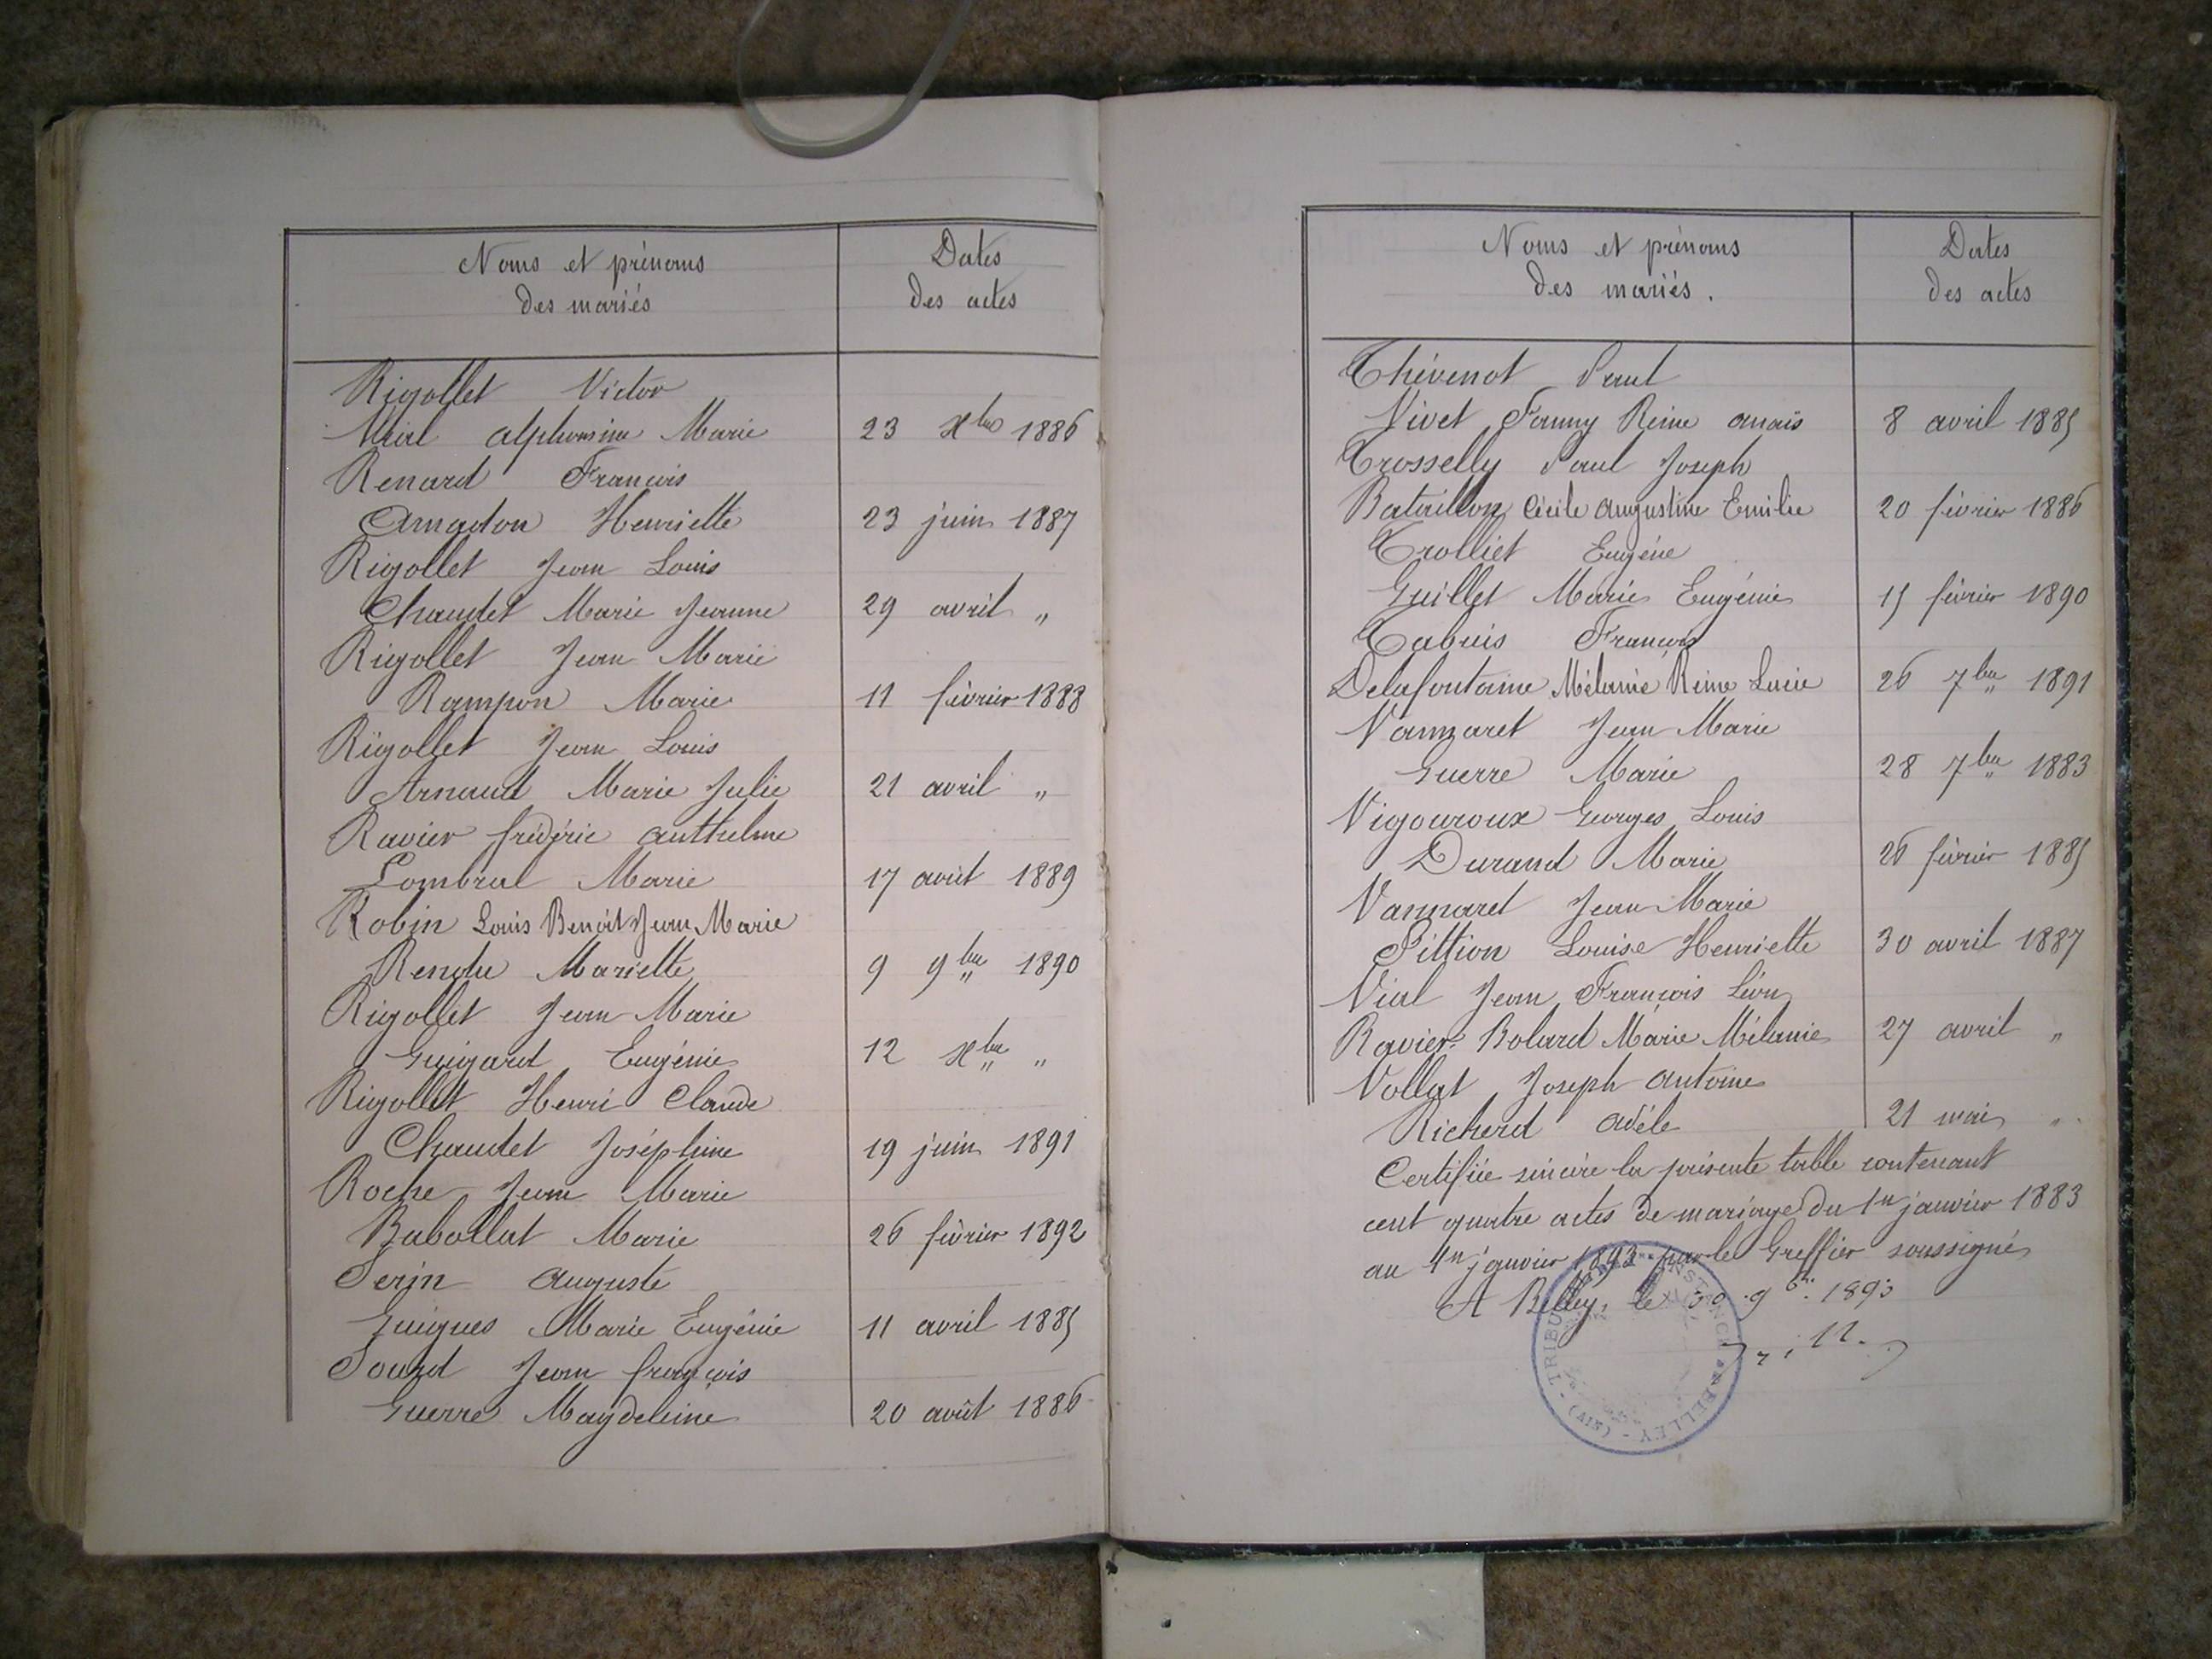 Noms et prénoms
des mariés
Dates
des actes
Rigollet Victor
Vial alphonsine Marie 23 xbre 1886
Renard François
Amadon Henriette 23 juin 1887
Rigollet Jean Louis
Chaudet Marie Jeanne 29 avril "
Rigollet Jean Marie
Rampon Marie 11 février 1888
Rigollet Jean Louis
Arnaud Marie Julie 21 avril "
Ravier frédéric anthelme
Lombral Marie 17 août 1889
Robin Louis Benoît Jean Marie
Rendu Mariette 9 9bre 1890
Rigollet Jean Marie
Guigard Eugénie 12 xbre "
Rigollet Henri Claude
Chaudet Joséphine 19 juin 1891
Roche Jean Marie
Babollat Marie 26 février 1892
Serin auguste
Guigues Marie Eugénie 11 avril 1885
Sourd Jean françois
Guerre Magdeleine 20 août 1886
Noms et prénoms
des mariés.
Dates
des actes
Thévenot Paul
Vivet Fanny Reine anaïs 8 avril 1885
Trosselly Paul Joseph
Bataillon Cécile augustine Emilie 20 février 1886
Trolliet Eugène
Guillet Marie Eugénie 15 février 1890
Tabuis François
Delafontaine Mélanie Reine Lucie 26 7bre 1891
Vannaret Jean Marie
Guerre Marie 28 7bre 1883
Vigouroux Georges Louis
Durand Marie 26 février 1885
Vannaret Jean Marie
Pittion Louise Henriette 30 avril 1887
Vial Jean François Léon
Ravier-Bolard Marie Mélanie 27 avril "
Vollat Joseph antoine
Richerd adèle 21 mai "
Certifiée sincère la présente table contenant
cent quatre actes de mariage du 1er janvier 1883
au 1er janvier 1893 par le Greffier soussigné
A Belley, le 30 9bre 1893
TRIBUNAL INSTANCE BELLEY (AIN)